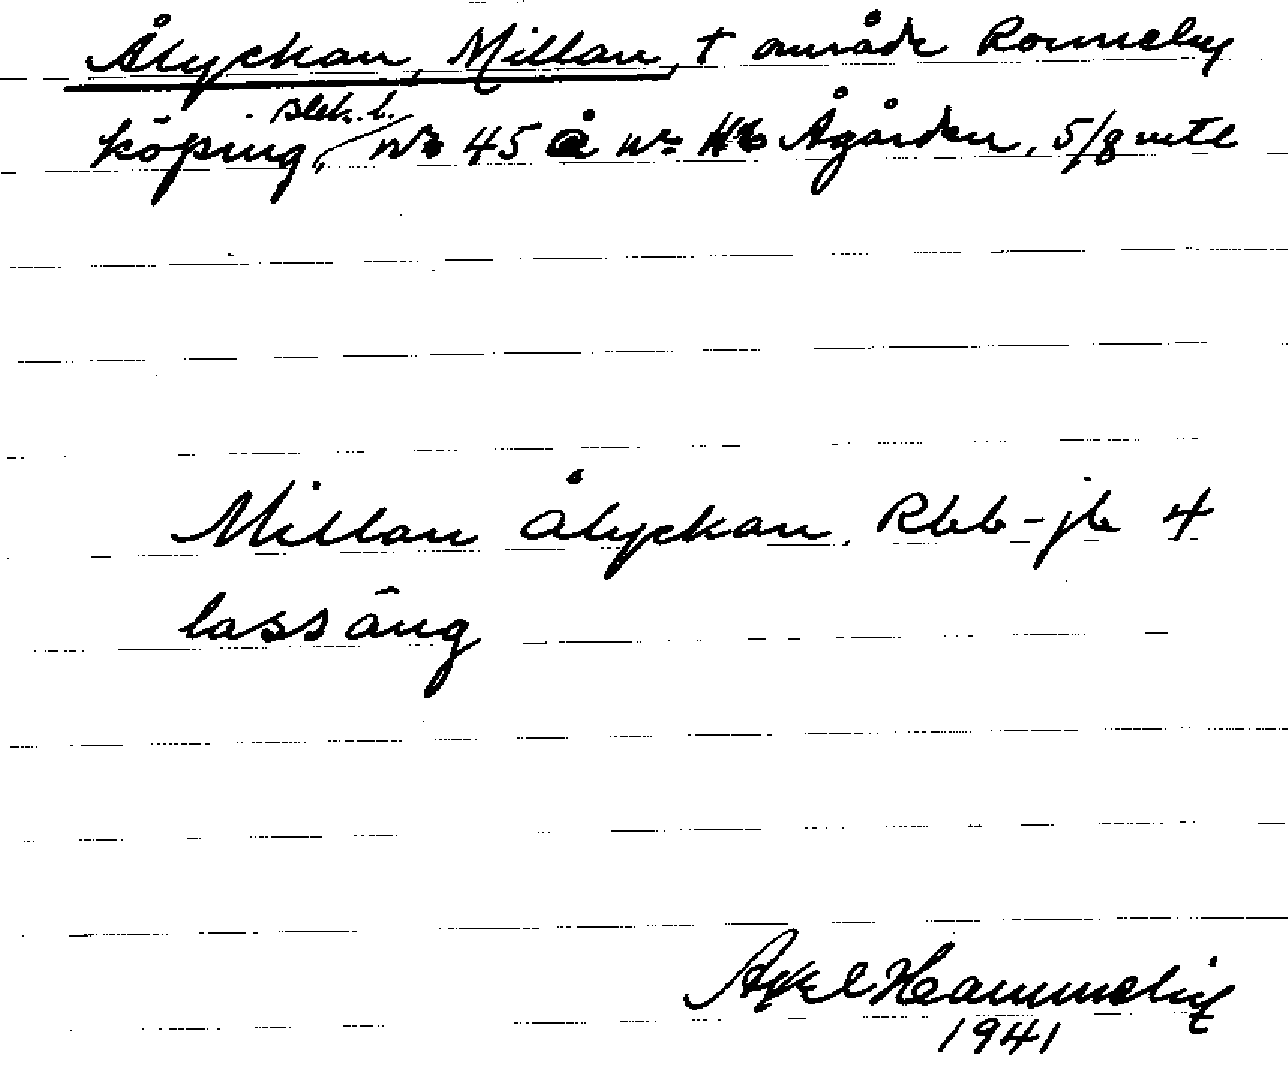 Ålyckan, Millan, † område Ronneby
Blek. l.
köping, № 45 å nr Ågården, 5/8 mtl
Millan ålyckan. Rbb-jb 4
lass äng
Axel Hammelin
1941